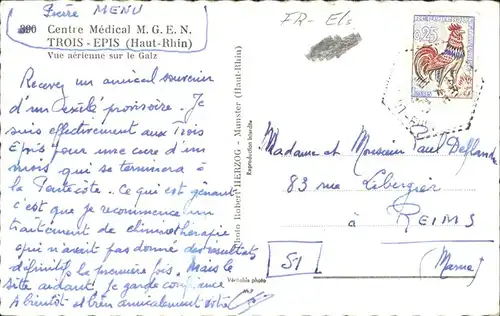 Pierre MENU
FR-Els
890 Centre Médical M. G. E. N.
TROIS-EPIS (Haut-Rhin)
Vue aérienne sur le Galz
0,25
Recevez un amical souvenir
d'un exilé provisoire. Je
suis effectivement aux Trois
Epis pour une cure d'un
mois qui se terminera à
la Pentecôte. Ce qui est gênant
c'est que je recommence un
traitement de climathérapie
qui n'avait pas donné des résultats
définitifs la première fois. Mais le
site aidant, je garde confiance
A bientôt et bien amicalement votre
Photo Robert HERZOG - Munster (Haut-Rhin)
Reproduction interdite
Véritable photo
Madame et Monsieur Paul Deflandre
83 rue Libergier
à REIMS
51
(Marne)